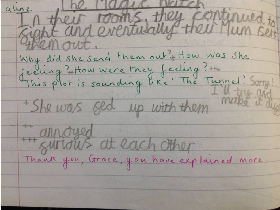 The Magic Watch
a line.
In their rooms, they continued to
sight and eventually their Mum sent
them out.
Why did she send them out? How was she
feeling? How were they feeling?
This plot is sounding like 'The Tunnel'
Sorry!
I'll try and
make it
+ She was sed up with them
++ annoyed
+++ surious at each other
Thank you, Grace, you have explained more